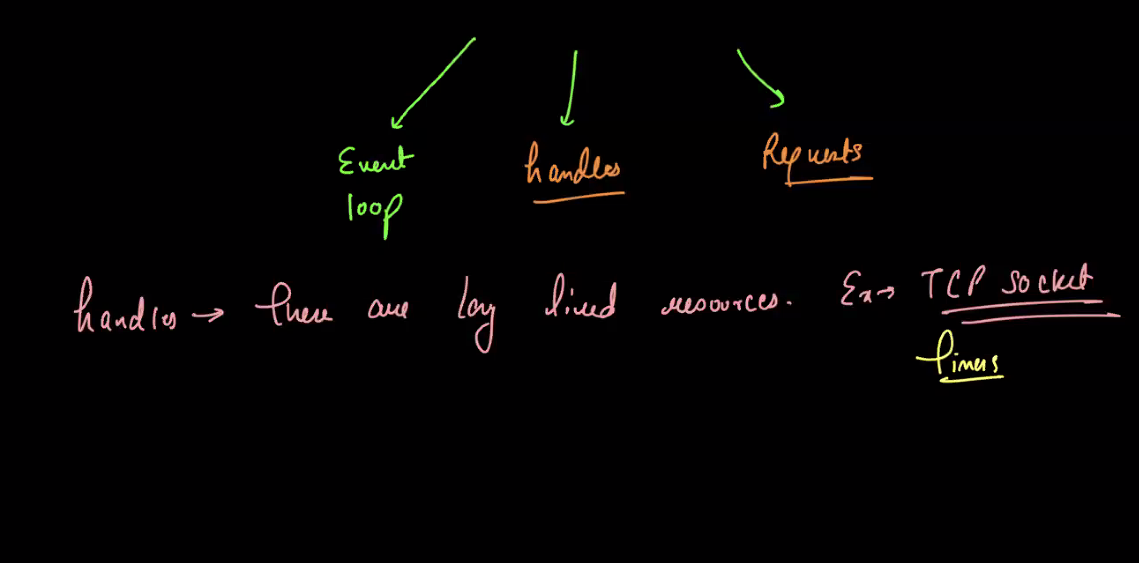 Event handles Requests
loop
handles → there are long lived resources. Ex → TCP socket
timers